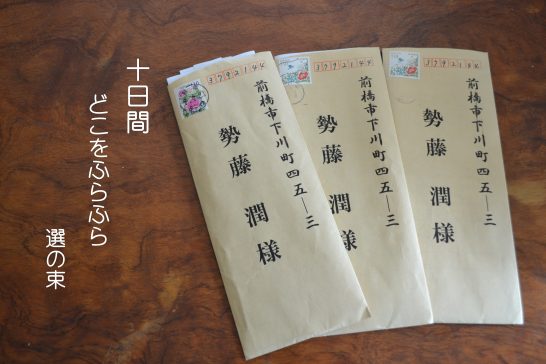 3792144
前橋市下川町四五―三
勢藤 潤様
3792144
前橋市下川町四五―三
勢藤 潤様
3792144
前橋市下川町四五―三
勢藤 潤様
十日間
どこをふらふら
選の束